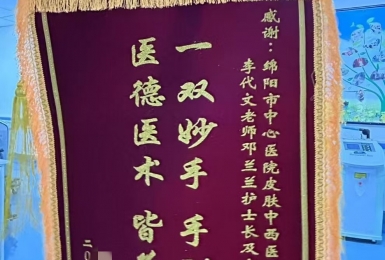 感谢：绵阳市中心医院皮肤中西医
李代文老师邓兰兰护士长及
一双妙手手
医德医术皆
二〇